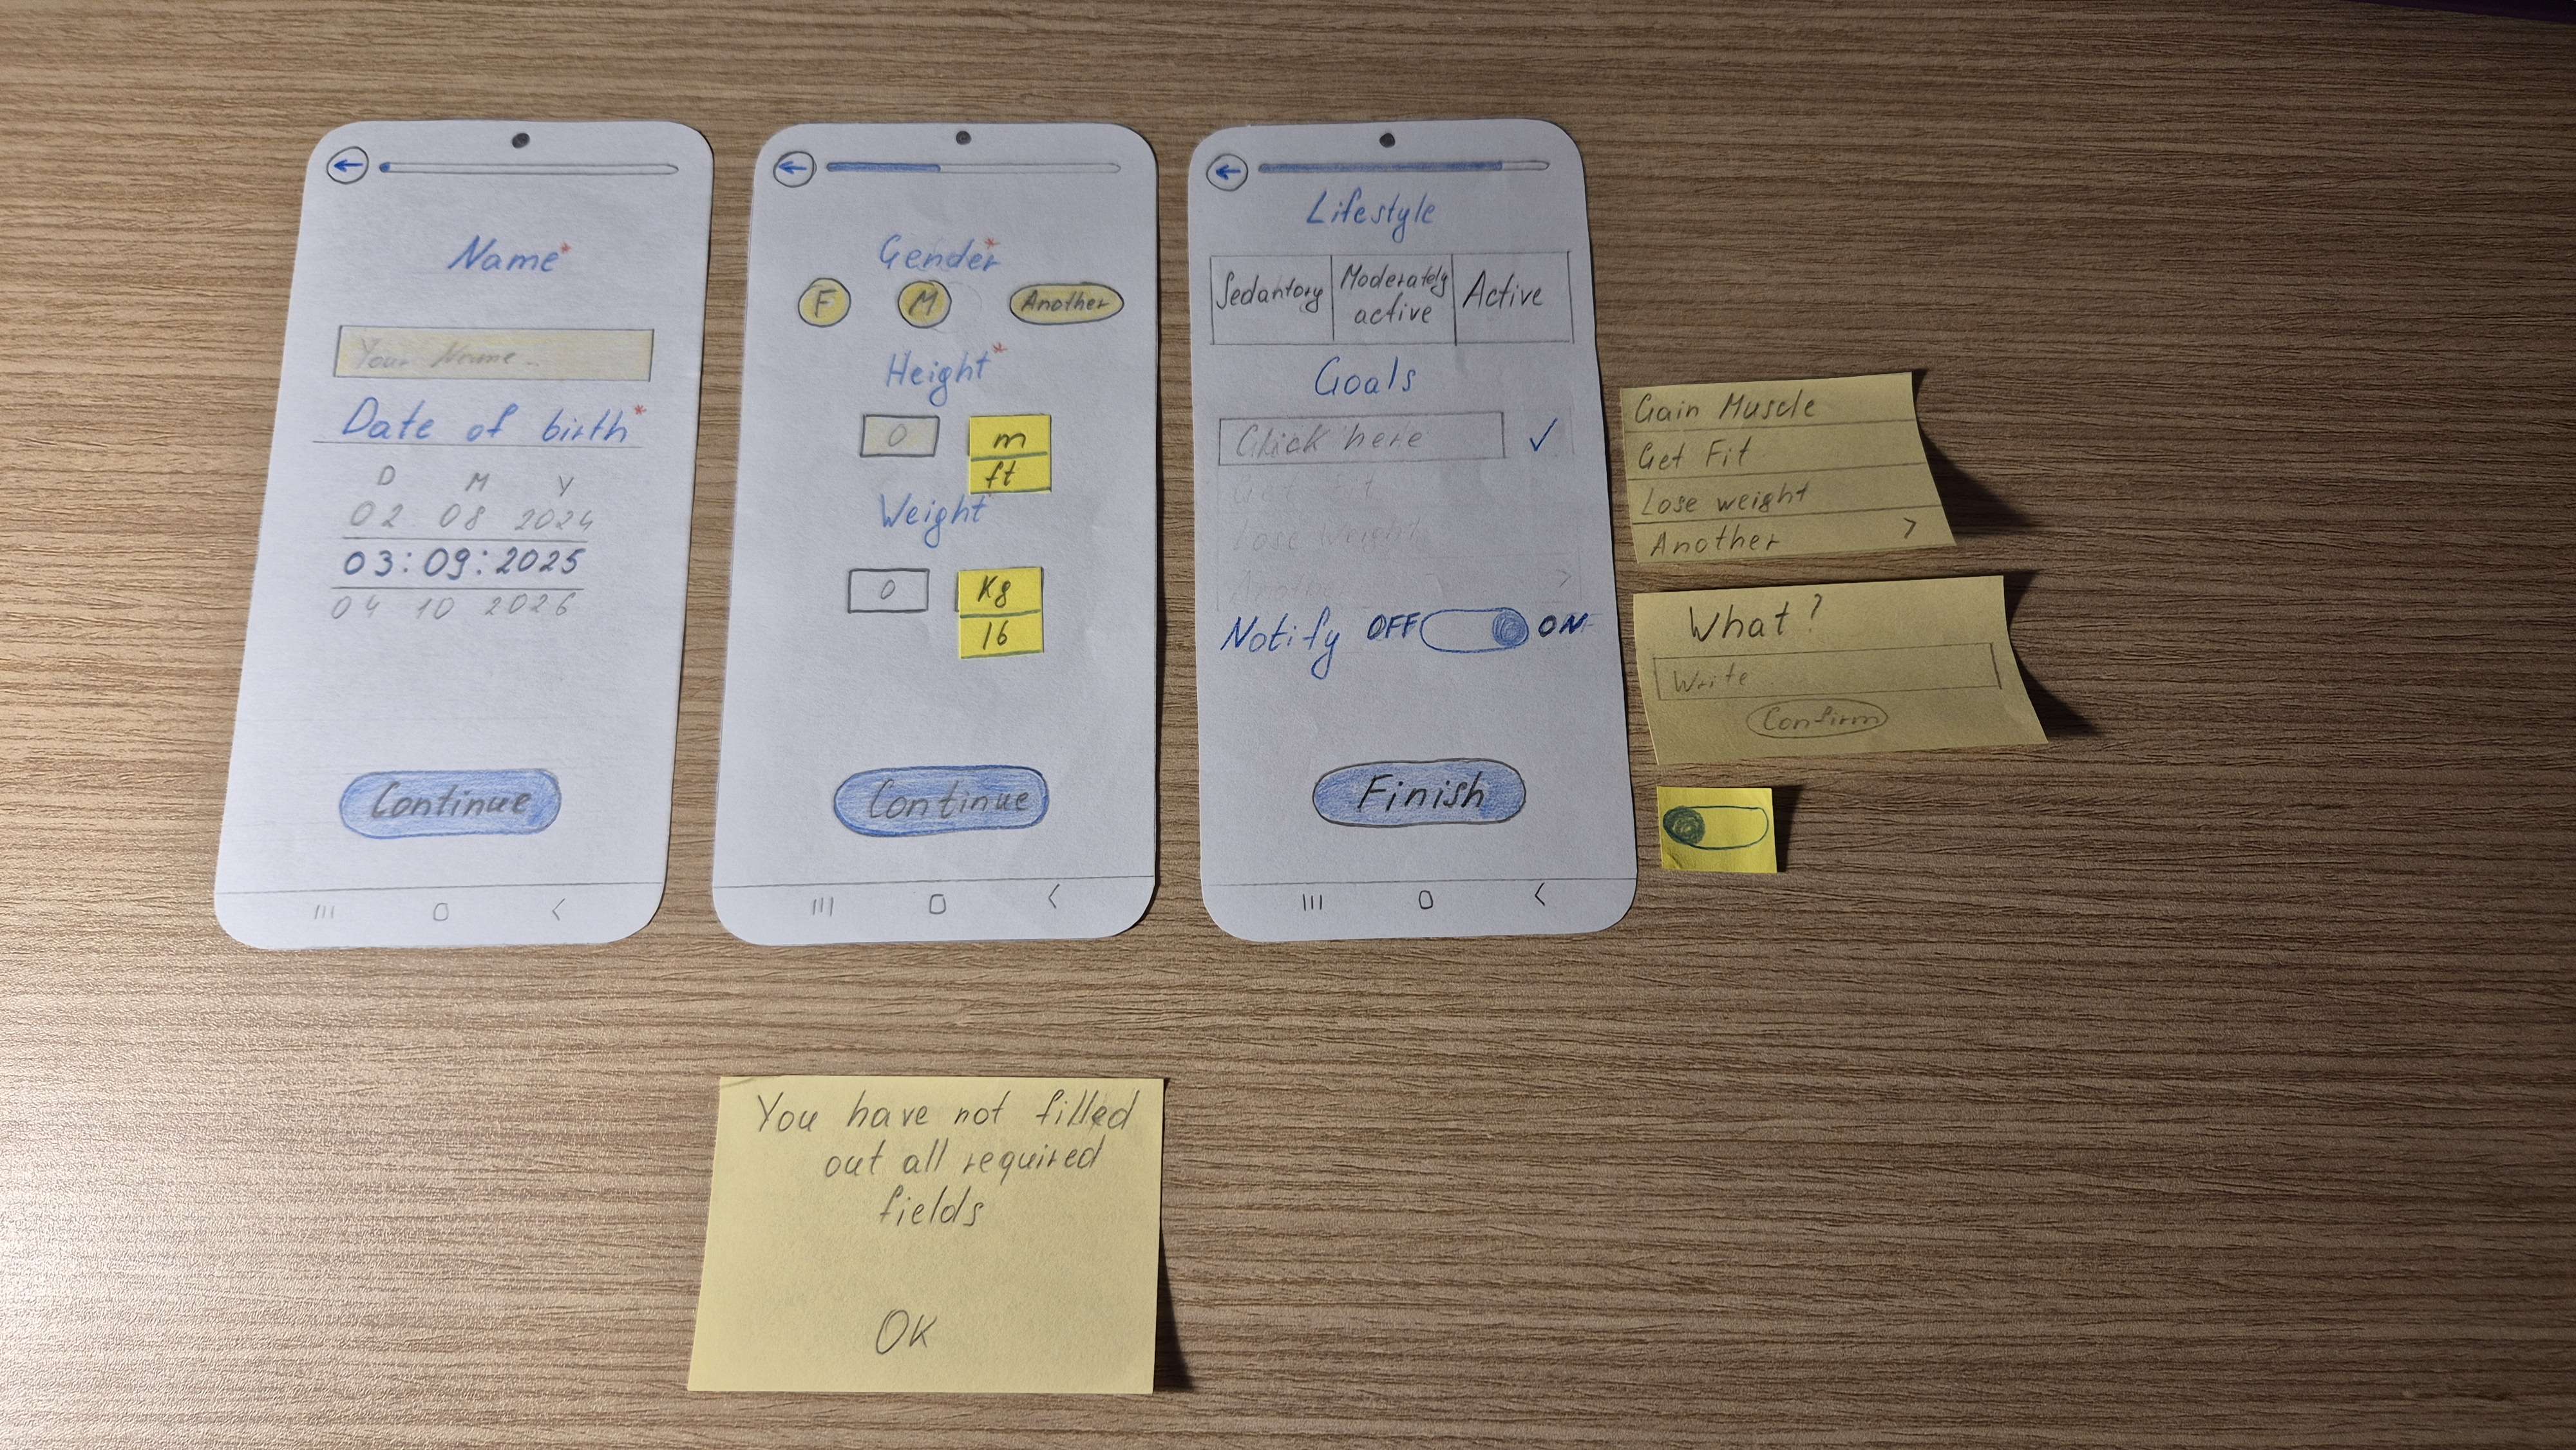 Name*
Your Name...
Date of birth*
D M Y
02 08 2024
03:09:2025
04 10 2026
Continue
Gender*
F M Another
Height*
0 m
ft
Weight
0 Kg
lb
Continue
Lifestyle
Sedantory Moderately active Active
Goals
Click here ✓
Get fit
Lose Weight
Another >
Notify OFF ON
Finish
Gain Muscle
Get Fit
Lose weight
Another >
What?
Write
Confirm
You have not filled
out all required
fields
OK